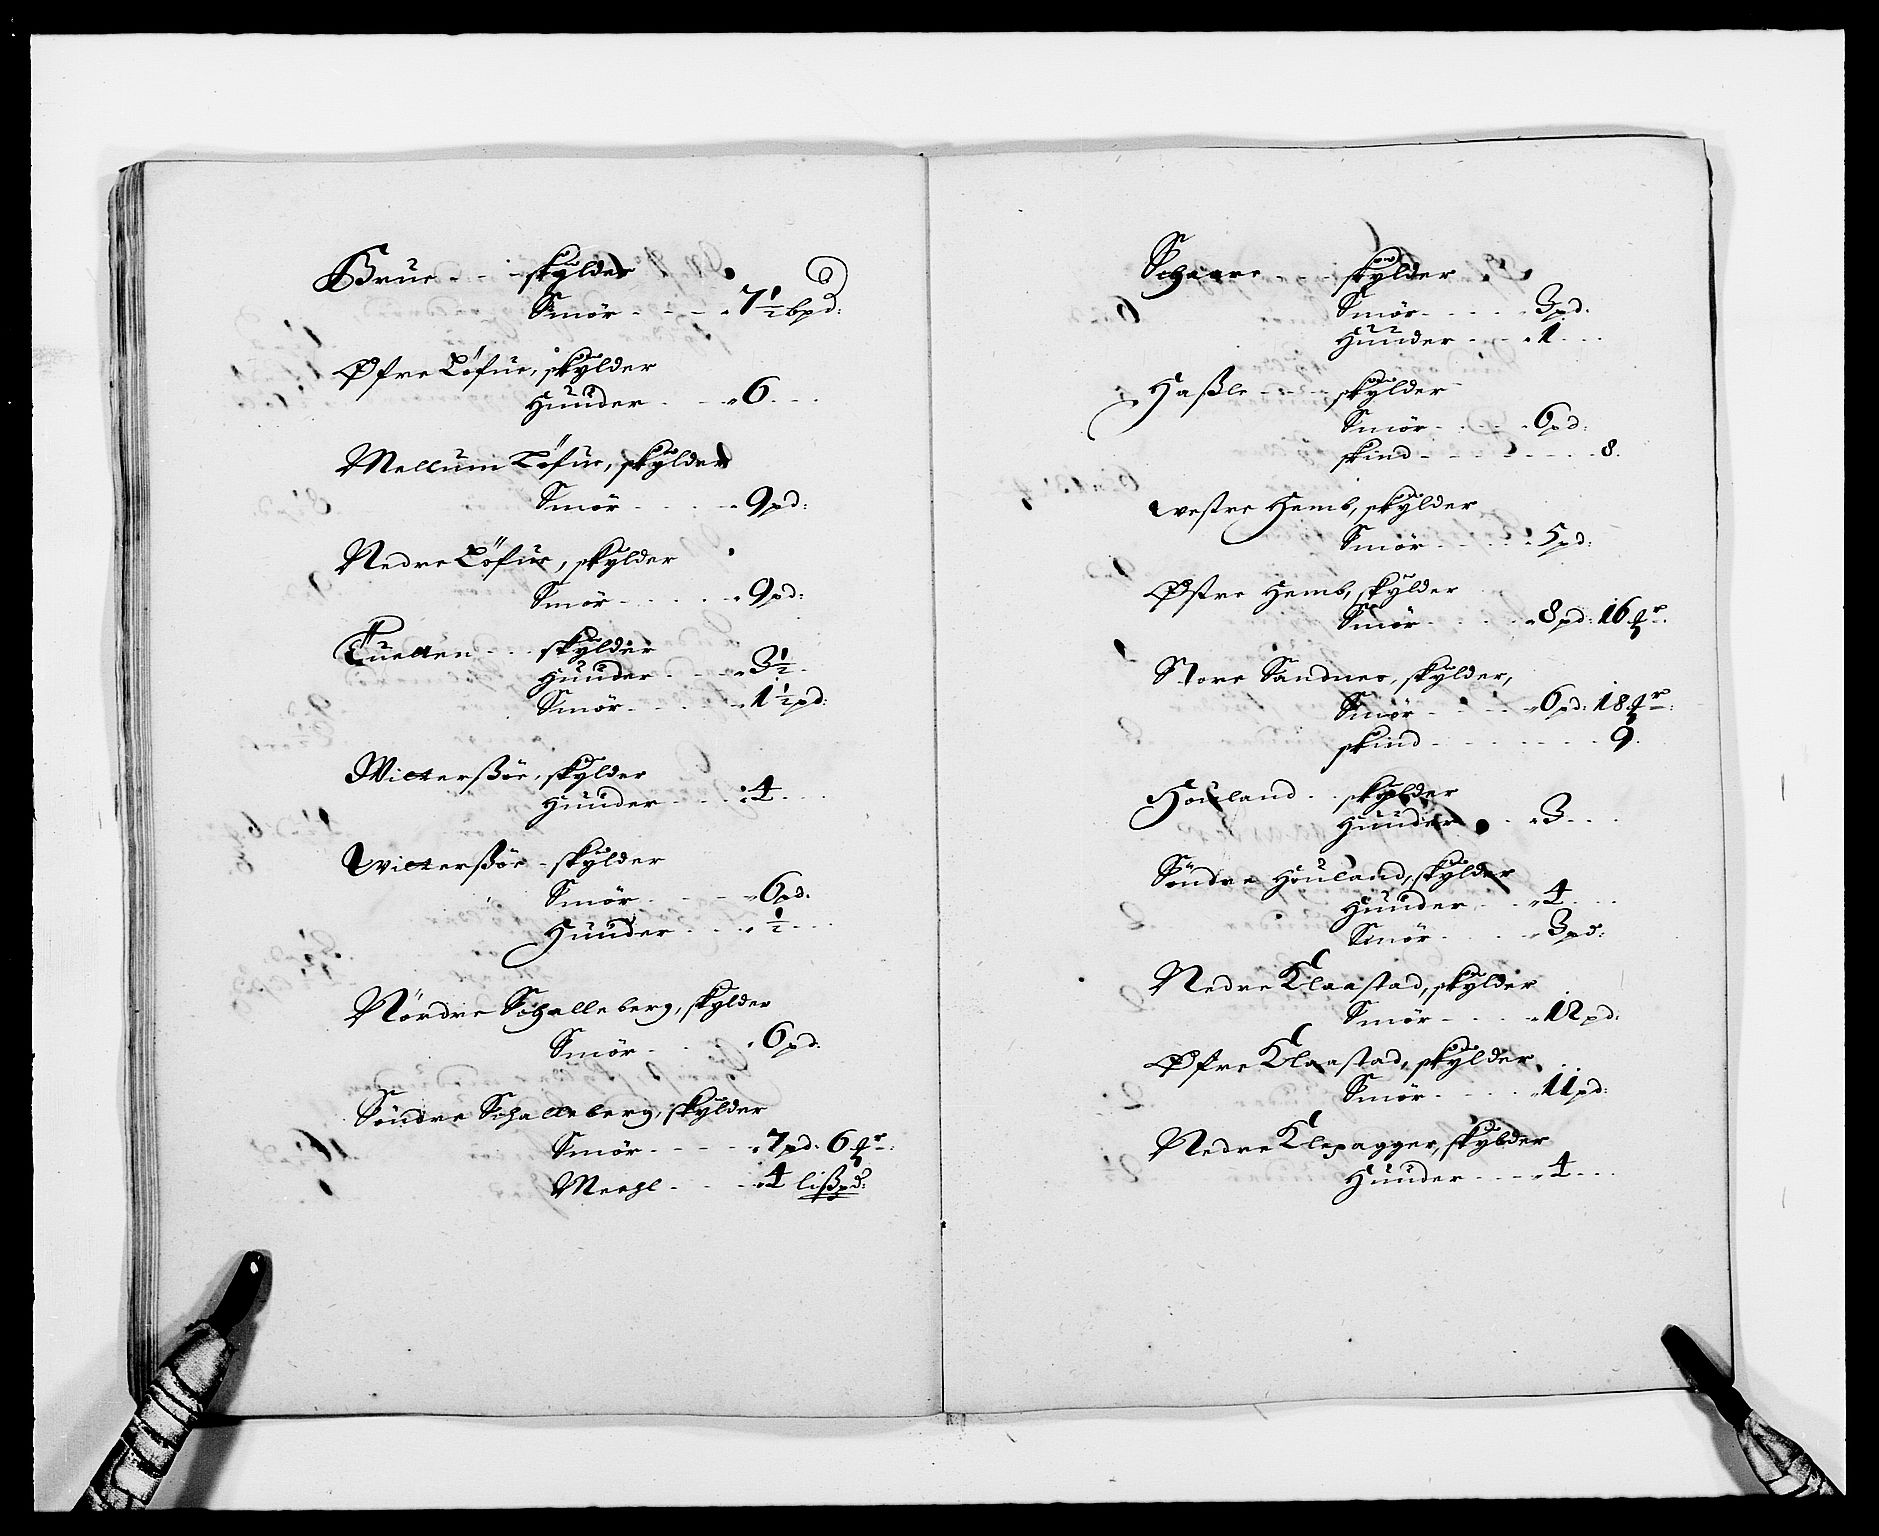 Brue - - - skylder
Smör - - - - 7½ bpd:
Øfre Löfue, skylder
Huuder - - - 6 - - -
Mellum Löfue, skylder
Smör - - - - 9 pd:
Nedre Löfue, skylder
Smör - - - - 9 pd:
Tuetten - - - skylder
Huuder - - - 3½ -
Smör - - - - 1½ pd:
Witterßöe, skylder
Huuder - - - 4 - - -
Witterßöe - skylder
Smör - - - - 6 pd:
Huuder - - - ½ - - -
Nördre Schalleberg, skylder
Smör - - - - 6 pd:
Söndre Schalleberg, skylder
Smör - - - - 7 pd: 6 mr:
Meehl - - - - 4 lißpd:
Schaare - - - skylder
Smör - - - - 3 pd:
Huuder - - - 1 - - -
Haßle - - - skylder
Smör - - - - 6 pd:
skind - - - - - - - 8.
westre Hemb, skylder
Smör - - - - 5 pd:
Østre Hemb, skylder
Smör - - - - 8 pd: 16 mr:
Store Sandnes, skylder,
Smör - - - - 6 pd: 18 mr:
skind - - - - - - - 9.
Houland - - skylder
Huuder - - - 3 - - -
Söndre Houland, skylder
Huuder - - - 4 - - -
Smör - - - - 3 pd:
Nedre Klaastad, skylder
Smör - - - - 12 pd:
Øfre Klaastad, skylder
Smör - - - - 11 pd:
Nedre Klepagger, skylder
Huuder - - - 4 - - -